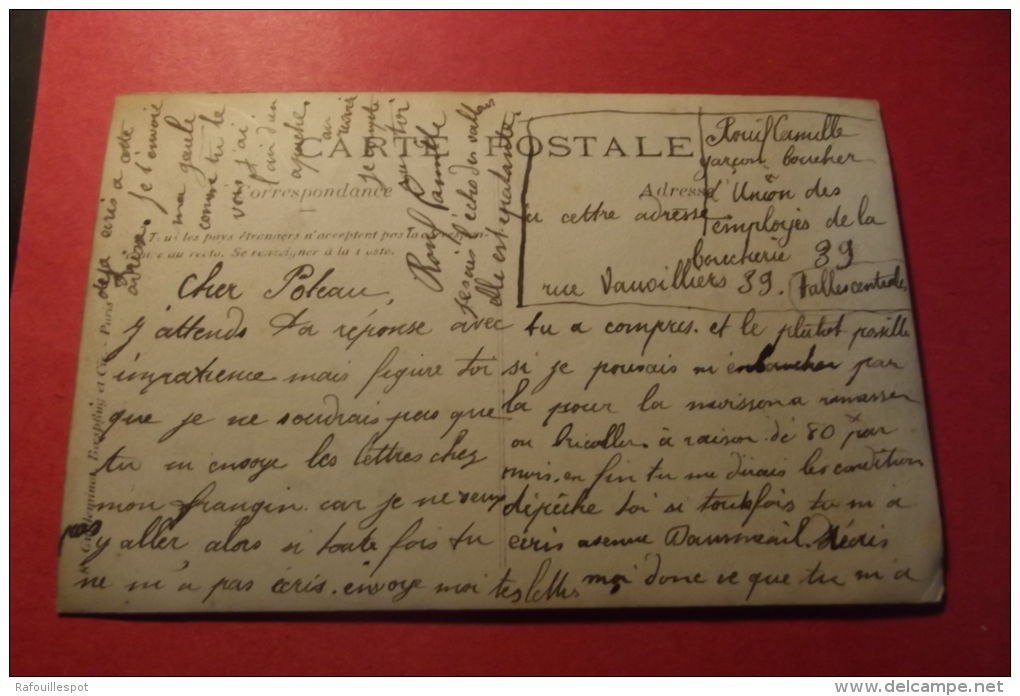 CARTE POSTALE
Correspondance
Adresse
Tous les pays étrangers n'acceptent pas la correspon-
dance au recto. Se renseigner à la Poste.
Rouif Camille
garçon boucher
l'Union des
employés de la
boucherie 39
rue Vauvilliers 39. Halles centrales
à cettre adresse
Cher Poteau,
J'attends ta réponse avec
impatience mais figure toi
que je ne voudrais pas que
tu m'envoye les lettres chez
mon frangin car je ne veux
pas y aller alors si toute fois tu
ne m'a pas écris. envoye moi tes lettres
tu a compris. et le plutot possible
si je pouvais m'enbaucher par
la pour la moisson a ramasser
ou bricoller à raison de 80 par
mois. en fin tu me dirais les condition
dépêche toi si toutefois tu m'a
écris avenue Daumenil. Récris
moi donc ce que tu m'a
deja ecris a cette
adresse. Je t'envoie
ma gueule
comme tu le
vois j'ai
l'air d'un
apache.
au
revoir
je compte
sur toi
Rouif Camille
Je suis l'écho du vallon
elle est epatante.
Guilleminot, Bœspflug et Cie. - Paris
Rafouillespot
www.delcampe.net